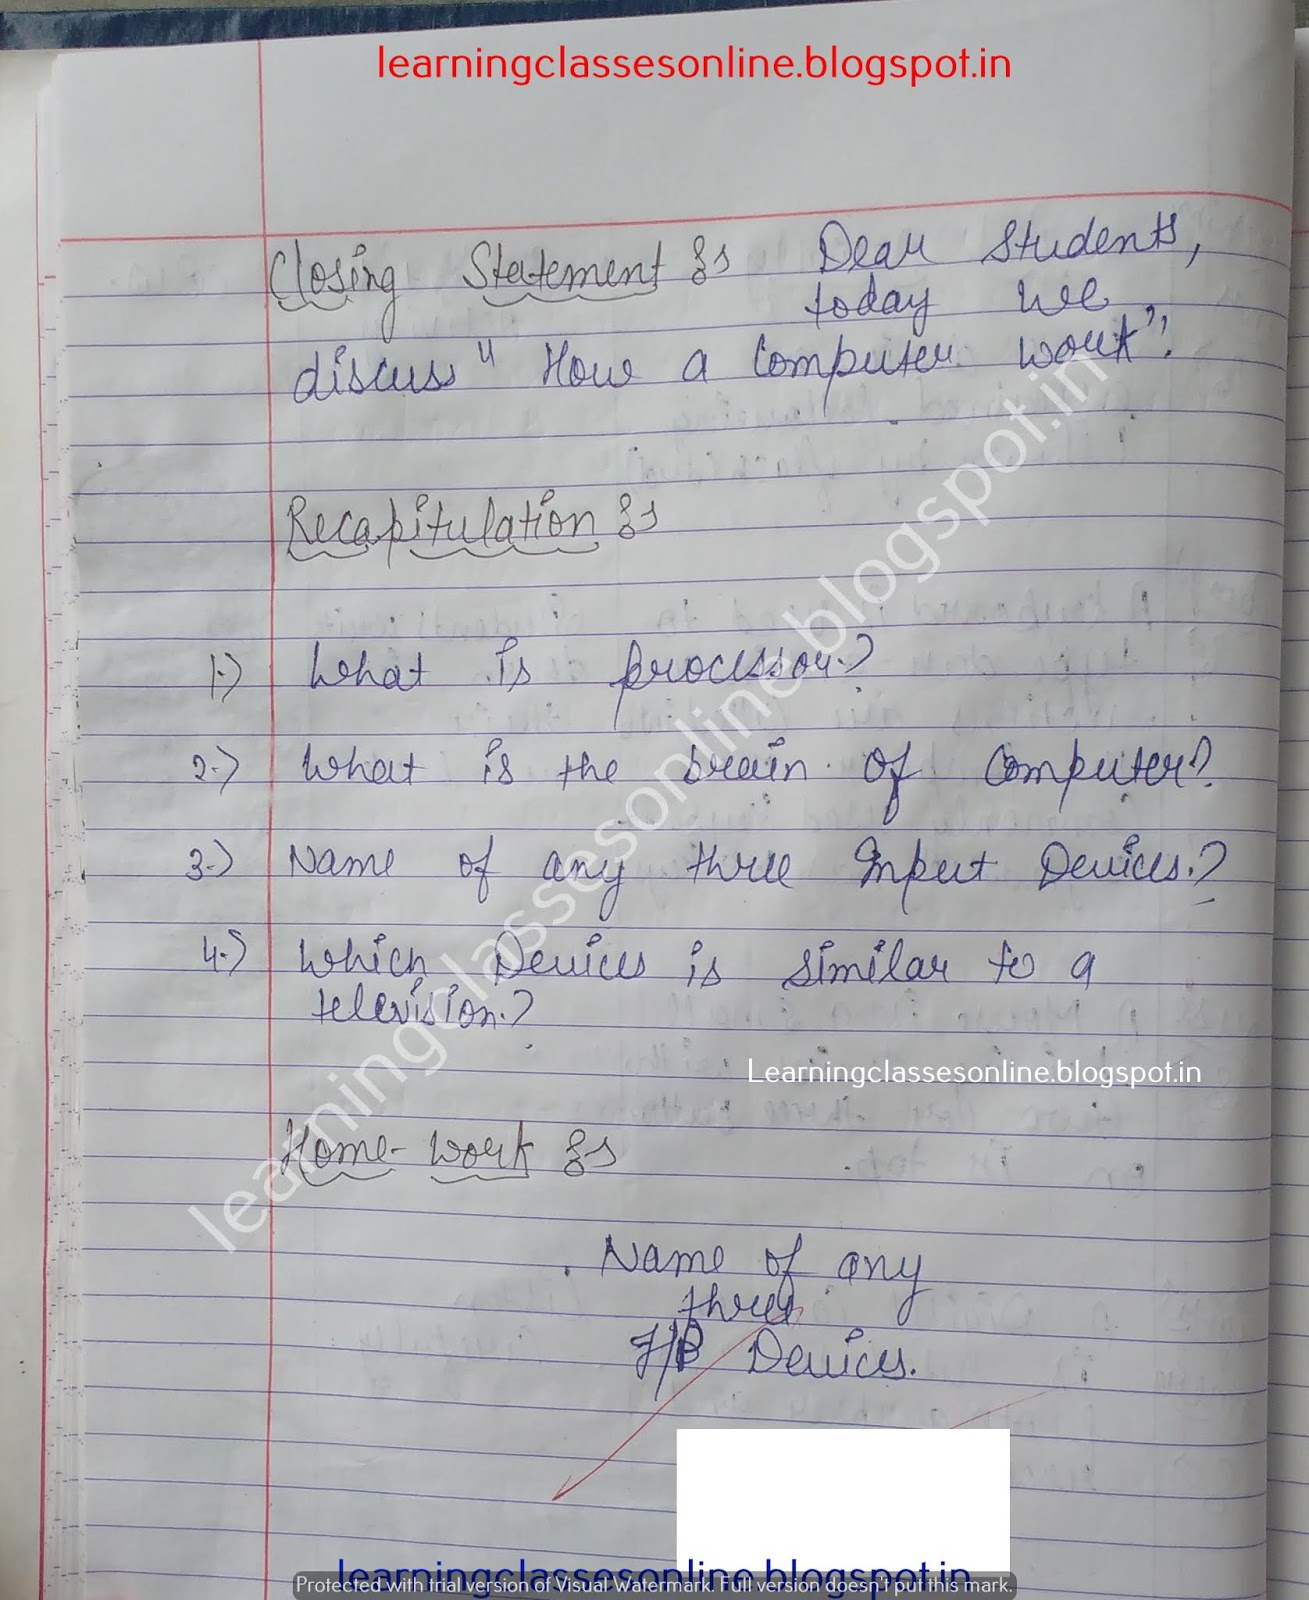 learningclassesonline.blogspot.in
Closing Statement :- Dear Students,
today we
discuss "How a Computer work".
Recapitulation :-
1.) What is processor.?
2.) What is the brain of Computer?
3.) Name of any three Input Devices.?
4.) Which Devices is similar to a
television.?
Learningclassesonline.blogspot.in
learningclassesonline.blogspot.in
Home-work :-
Name of any
three
I/P Devices.
learningclassesonline.blogspot.in
Protected with trial version of Visual Watermark. Full version doesn't put this mark.